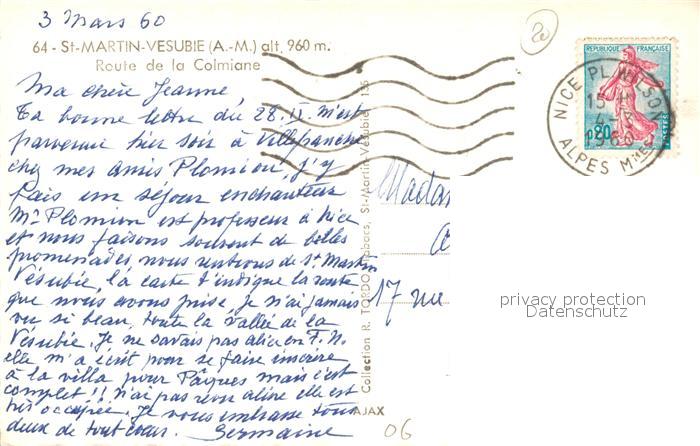 3 Mars 60
20
64 - St-MARTIN-VESUBIE (A.-M.) alt. 960 m.
Route de la Colmiane
Ma chère Jeanne,
Ta bonne lettre du 28.II. m'est
parvenue hier soir à Villefranche
chez mes amis Plomion, j'y
fais un séjour enchanteur
Mr Plomion est professeur à Nice
et nous faisons souvent de belles
promenades nous rentrons de St Martin
Vésubie, la carte t'indique la route
que nous avons prise, je n'ai jamais
vu si beau, toute la vallée de la
Vésubie. Je ne savais pas alice en
elle m'a écrit pour se faire inscrire
à la villa pour Pâques mais c'est
complet !! n'ai pas revu aline elle est
très occupée. Je vous embrasse tous
deux de tout cœur. Germaine
Collection R. TORDO, Tabacs, St-Martin-Vésubie
AJAX
06
REPUBLIQUE FRANÇAISE
0,20
POSTES
NICE PL. WILSON
15 H
4-3
1960
ALPES Mmes
Madam
17 rue
privacy protection
Datenschutz